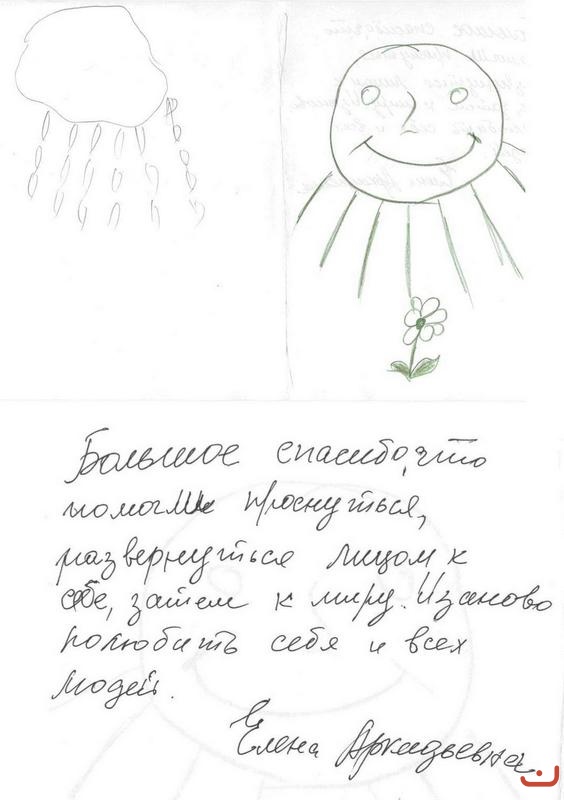 Большое спасибо, что
помогли проснуться,
развернуться лицом к
себе, затем к миру. И заново
полюбить себя и всех
людей.
Елена Аркадьевна